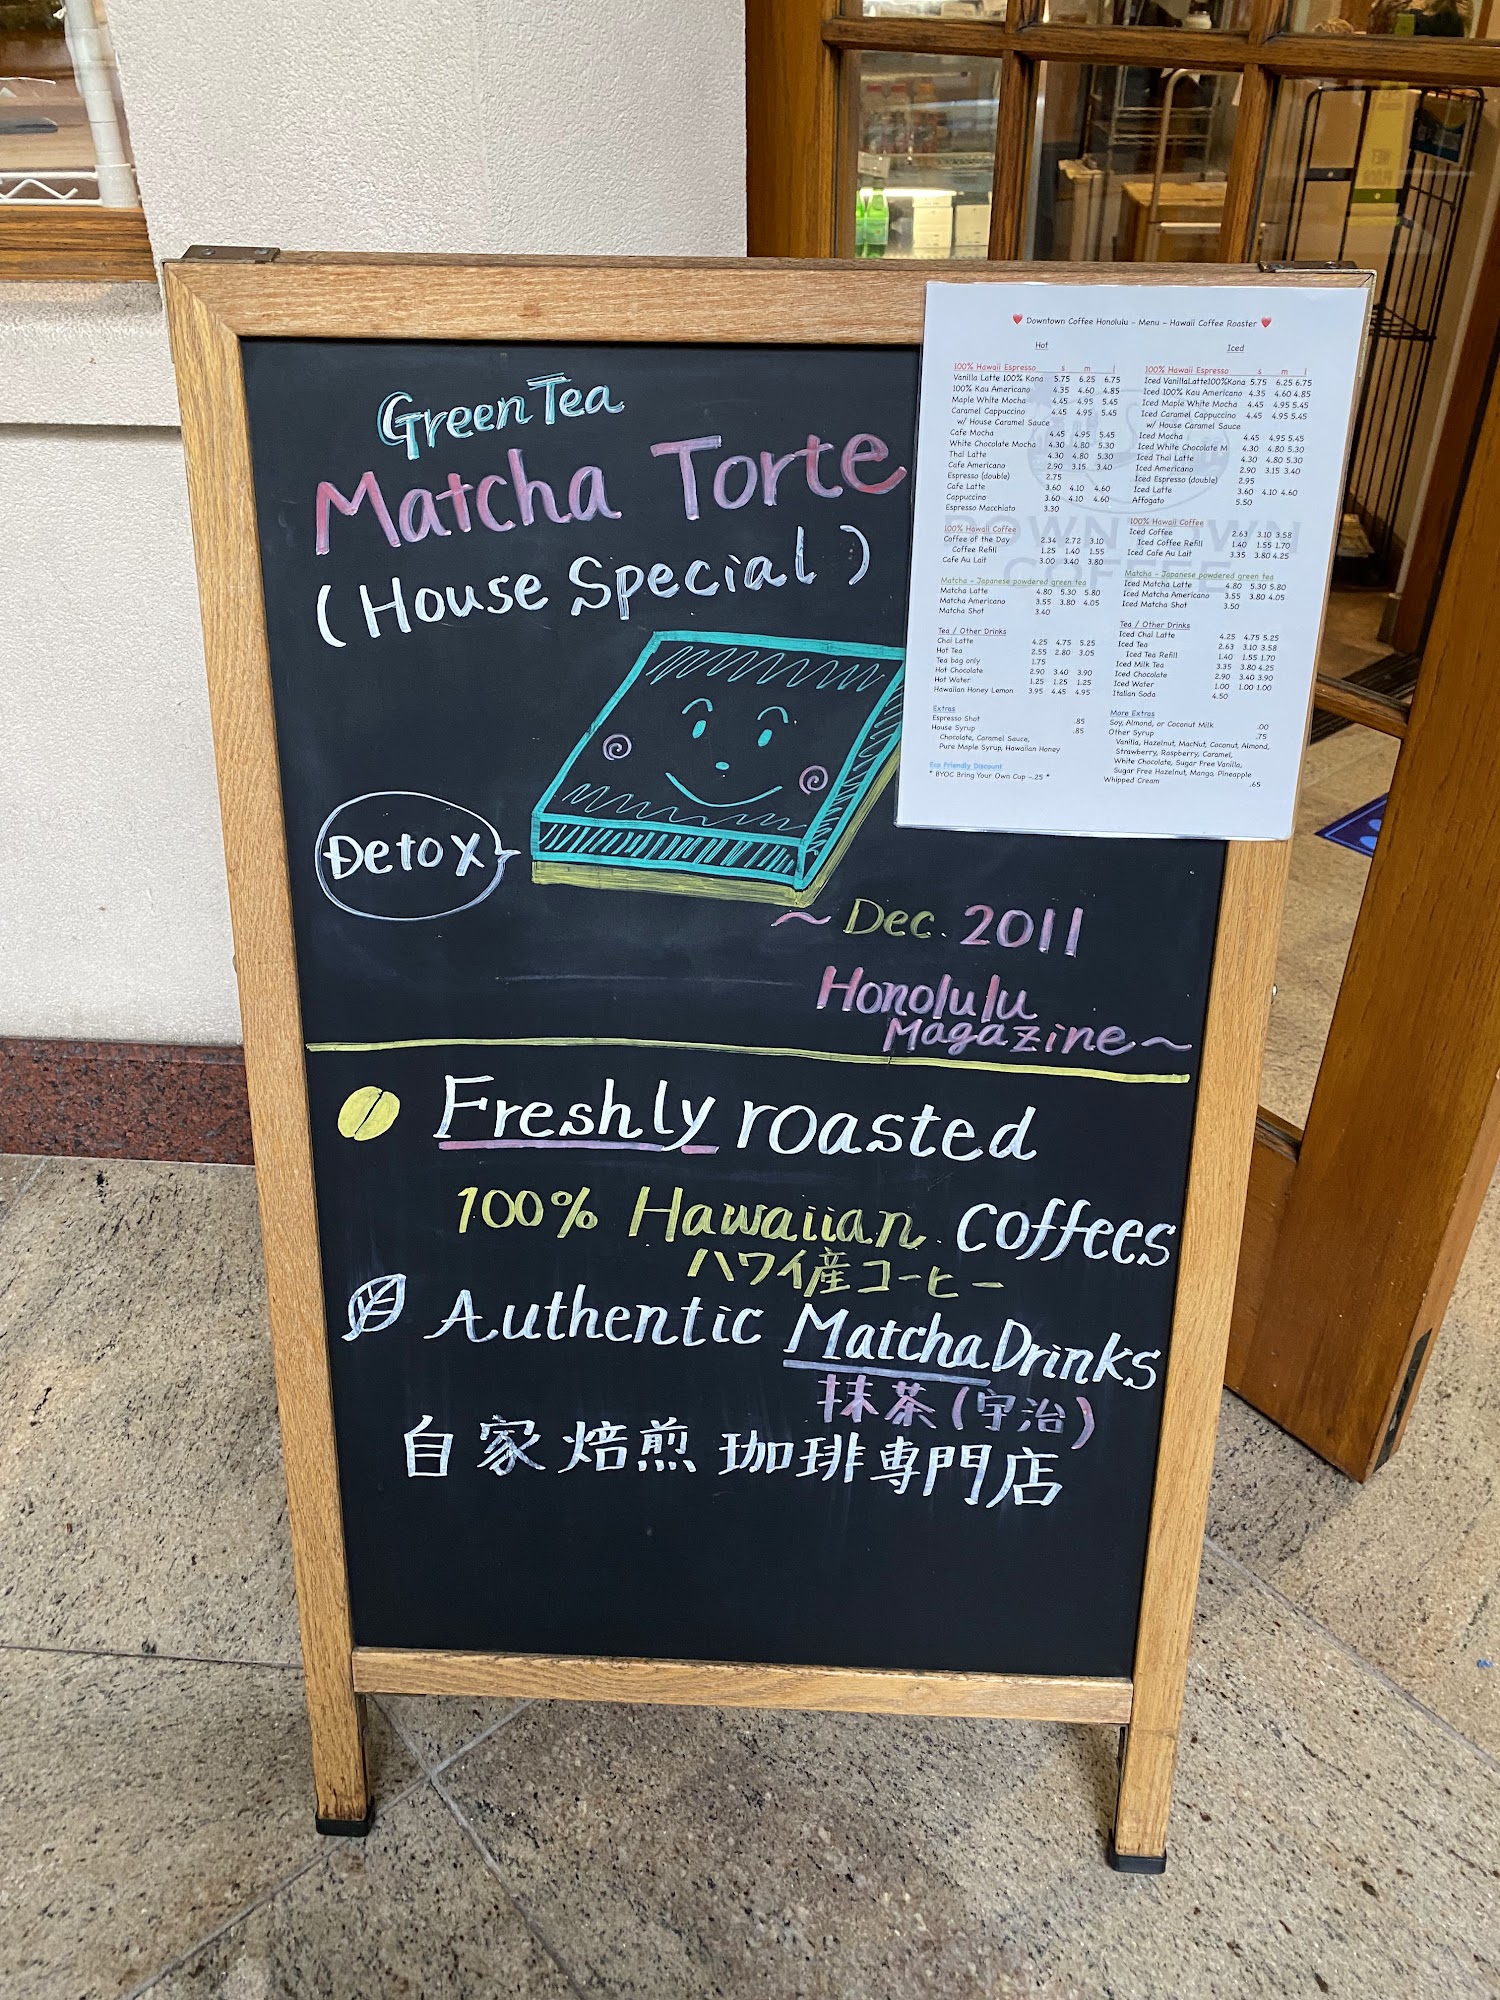 Green Tea
Matcha Torte
(House Special)
Detox
~ Dec. 2011
Honolulu
Magazine ~
Freshly roasted
100% Hawaiian coffees
ハワイ産コーヒー
Authentic Matcha Drinks
抹茶(宇治)
自家焙煎珈琲専門店
❤ Downtown Coffee Honolulu - Menu - Hawaii Coffee Roaster ❤
Hot
100% Hawaii Espresso s m l
Vanilla Latte 100% Kona 5.75 6.25 6.75
100% Kau Americano 4.35 4.60 4.85
Maple White Mocha 4.45 4.95 5.45
Caramel Cappuccino 4.45 4.95 5.45
w/ House Caramel Sauce
Cafe Mocha 4.45 4.95 5.45
White Chocolate Mocha 4.30 4.80 5.30
Thai Latte 4.30 4.80 5.30
Cafe Americano 2.90 3.15 3.40
Espresso (double) 2.75
Cafe Latte 3.60 4.10 4.60
Cappuccino 3.60 4.10 4.60
Espresso Macchiato 3.30
100% Hawaii Coffee
Coffee of the Day 2.34 2.72 3.10
Coffee Refill 1.25 1.40 1.55
Cafe Au Lait 3.00 3.40 3.80
Matcha - Japanese powdered green tea
Matcha Latte 4.80 5.30 5.80
Matcha Americano 3.55 3.80 4.05
Matcha Shot 3.40
Tea / Other Drinks
Chai Latte 4.25 4.75 5.25
Hot Tea 2.55 2.80 3.05
Tea bag only 1.75
Hot Chocolate 2.90 3.40 3.90
Hot Water 1.25 1.25 1.25
Hawaiian Honey Lemon 3.95 4.45 4.95
Extras
Espresso Shot .85
House Syrup .85
Chocolate, Caramel Sauce,
Pure Maple Syrup, Hawaiian Honey
Eco Friendly Discount
* BYOC Bring Your Own Cup -.25 *
Iced
100% Hawaii Espresso s m l
Iced VanillaLatte100%Kona 5.75 6.25 6.75
Iced 100% Kau Americano 4.35 4.60 4.85
Iced Maple White Mocha 4.45 4.95 5.45
Iced Caramel Cappuccino 4.45 4.95 5.45
w/ House Caramel Sauce
Iced Mocha 4.45 4.95 5.45
Iced White Chocolate M 4.30 4.80 5.30
Iced Thai Latte 4.30 4.80 5.30
Iced Americano 2.90 3.15 3.40
Iced Espresso (double) 2.95
Iced Latte 3.60 4.10 4.60
Affogato 5.50
100% Hawaii Coffee
Iced Coffee 2.63 3.10 3.58
Iced Coffee Refill 1.40 1.55 1.70
Iced Cafe Au Lait 3.35 3.80 4.25
Matcha - Japanese powdered green tea
Iced Matcha Latte 4.80 5.30 5.80
Iced Matcha Americano 3.55 3.80 4.05
Iced Matcha Shot 3.50
Tea / Other Drinks
Iced Chai Latte 4.25 4.75 5.25
Iced Tea 2.63 3.10 3.58
Iced Tea Refill 1.40 1.55 1.70
Iced Milk Tea 3.35 3.80 4.25
Iced Chocolate 2.90 3.40 3.90
Iced Water 1.00 1.00 1.00
Italian Soda 4.50
More Extras
Soy, Almond, or Coconut Milk .00
Other Syrup .75
Vanilla, Hazelnut, MacNut, Coconut, Almond,
Strawberry, Raspberry, Caramel,
White Chocolate, Sugar Free Vanilla,
Sugar Free Hazelnut, Mango, Pineapple
Whipped Cream .65
DOWNTOWN
COFFEE